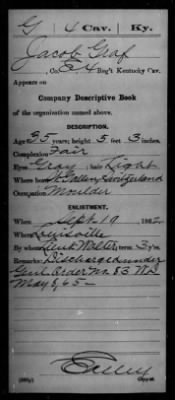 G 4 Cav. Ky.
Jacob Graf
, Co. E, 4 Reg't Kentucky Cav.
Appears on
Company Descriptive Book
of the organization named above.
DESCRIPTION.
Age 35 years; height 5 feet 3 inches.
Complexion Fair
Eyes Gray; hair Light
Where born St Gallen, Switzerland
Occupation Moulder
ENLISTMENT.
When Sept 19, 1862.
Where Louisville
By whom Lieut Walter; term 3 y'rs.
Remarks: Discharged under
Genl Order No 83 W.D.
May 8, 65
Copyist.